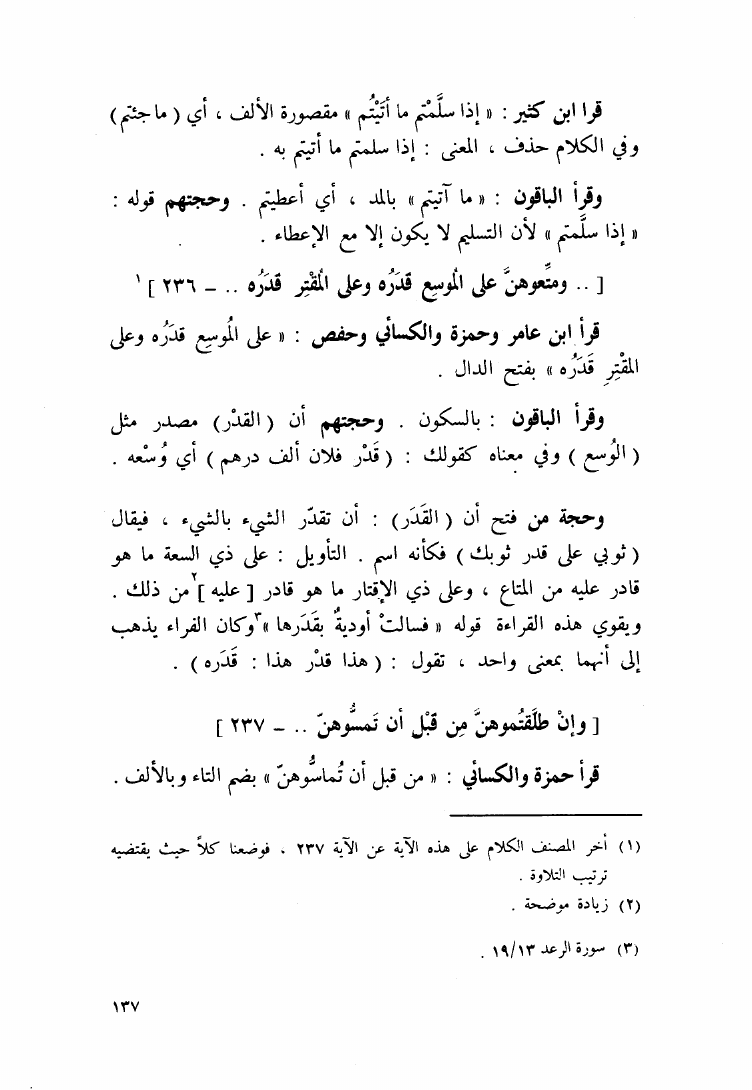 قرا ابن كثير : « إذا سلَّمْتم ما أتَيْتُم » مقصورة الألف ، أي ( ما جئتم )
وفي الكلام حذف ، المعنى : إذا سلمتم ما أتيتم به .
وقرأ الباقون : « ما آتيتم » بالمد ، أي أعطيتم . وحجتهم قوله :
« إذا سلَّمتم » لأن التسليم لا يكون إلا مع الإعطاء .
[ .. ومتِّعوهنَّ على الموسع قدَرُه وعلى المُقْتِر قدَرُه .. ـ ٢٣٦ ] ١
قرأ ابن عامر وحمزة والكسائي وحفص : « على المُوسِع قدَرُه وعلى
المقتِر قَدَرُه » بفتح الدال .
وقرأ الباقون : بالسكون . وحجتهم أن ( القدْر ) مصدر مثل
( الوُسع ) وفي معناه كقولك : ( قدْر فلان ألف درهم ) أي وُسْعه .
وحجة من فتح أن ( القَدَر ) : أن تقدّر الشيء بالشيء ، فيقال
( ثوبي على قدر ثوبك ) فكأنه اسم . التأويل : على ذي السعة ما هو
قادر عليه من المتاع ، وعلى ذي الإقتار ما هو قادر [ عليه ]٢ من ذلك .
ويقوي هذه القراءة قوله « فسالتْ أوديةٌ بقَدَرها »٣ وكان الفراء يذهب
إلى أنهما بمعنى واحد ، تقول : ( هذا قدْر هذا : قَدَره ) .
[ وإنْ طلَّقتُموهنَّ مِن قبْل أن تَمسُّوهنّ .. ـ ٢٣٧ ]
قرأ حمزة والكسائي : « من قبل أن تُماسُّوهنّ » بضم التاء وبالألف .
(١) أخر المصنف الكلام على هذه الآية عن الآية ٢٣٧ ، فوضعنا كلاً حيث يقتضيه
ترتيب التلاوة .
(٢) زيادة موضحة .
(٣) سورة الرعد ١٩/١٣ .
١٣٧